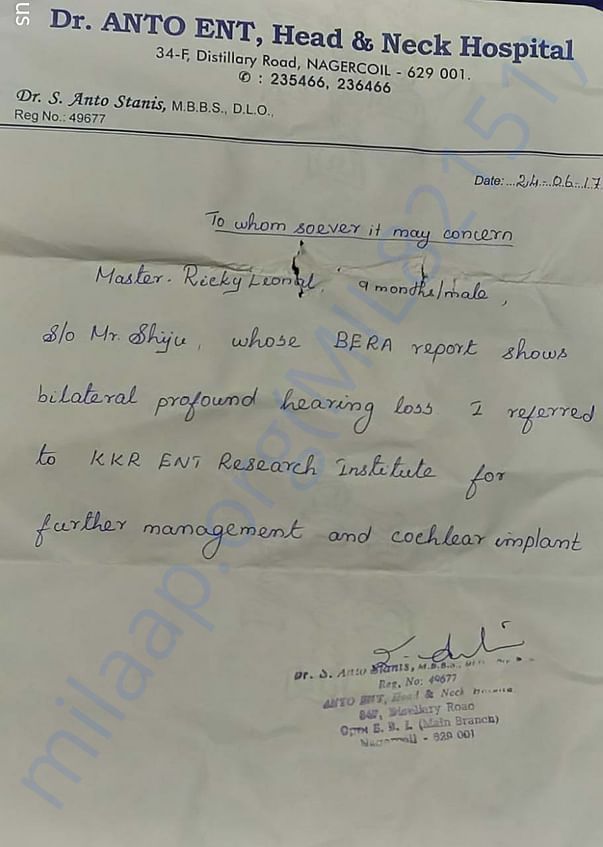 sn
Dr. ANTO ENT, Head & Neck Hospital
34-F, Distillary Road, NAGERCOIL - 629 001.
✆ : 235466, 236466
Dr. S. Anto Stanis, M.B.B.S., D.L.O.,
Reg No.: 49677
Date: ...24.-.06.-.17
To whom soever it may concern
Master. Ricky Leonal, 9 months/male,
S/o Mr. Shiju, whose BERA report shows
bilateral profound hearing loss. I referred
to KKR ENT Research Institute for
further management and cochlear implant
Dr. S. Anto Stanis, M.B.B.S.,
Reg. No: 49677
ANTO ENT, Head & Neck
34F, Distellary Road
Opp: S. B. I. (Main Branch)
Nagercoil - 629 001
milaap.org(MILS21511)